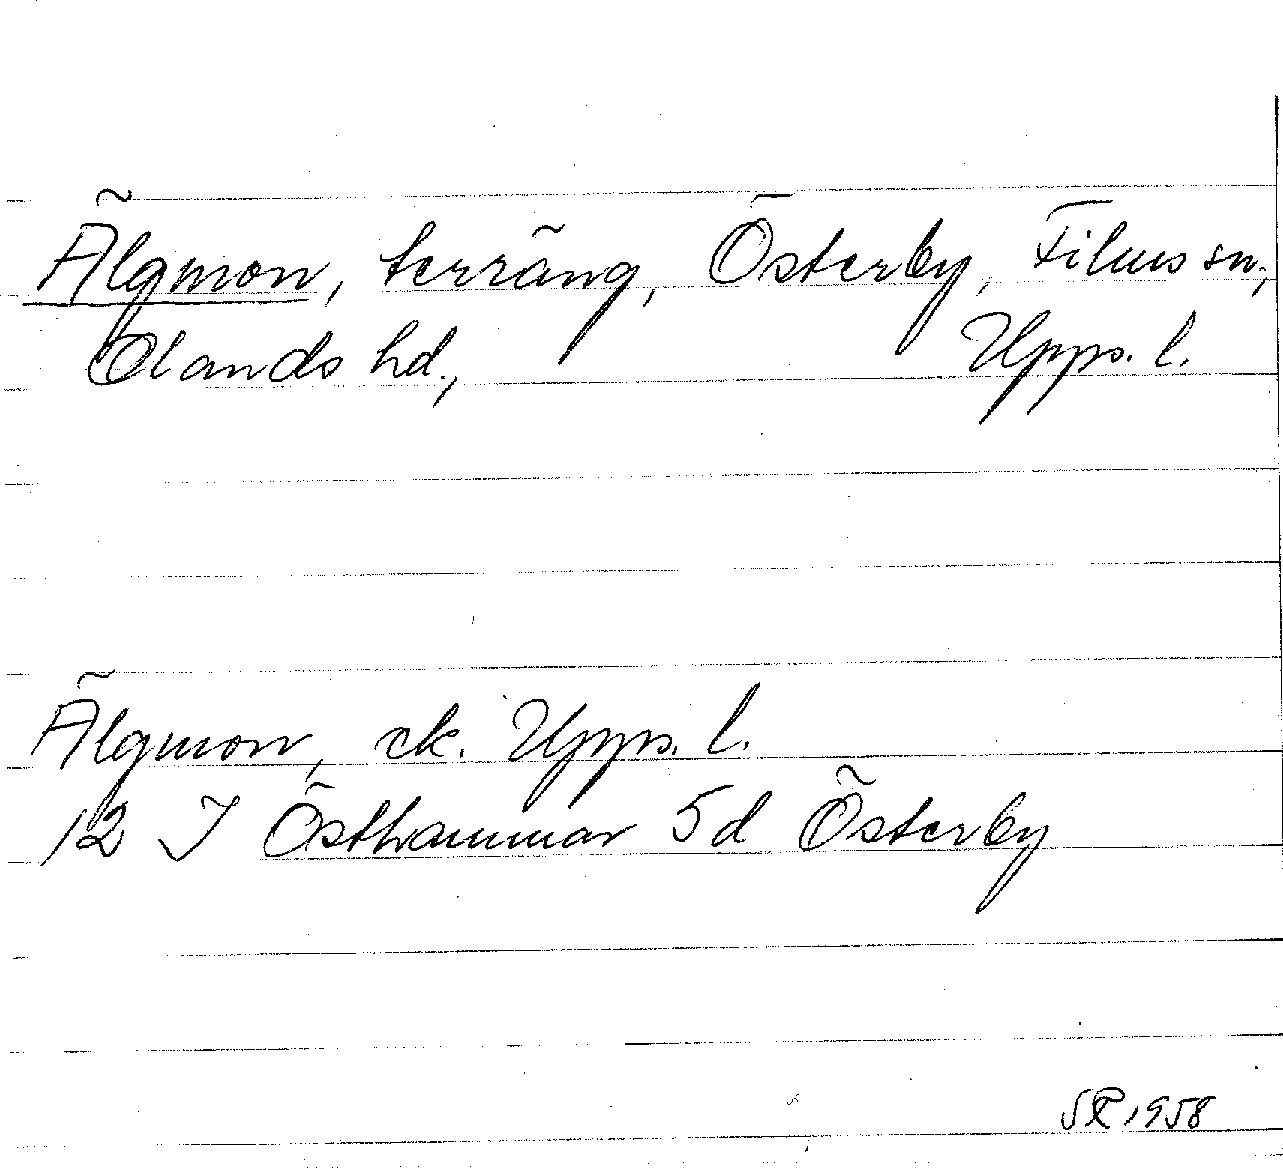 Älgmon, terräng, Österby, Films sn,
Olands hd., Upps. l.
Älgmon, ek. Upps. l.
12 I Östhammar 5d Österby
SR 1958